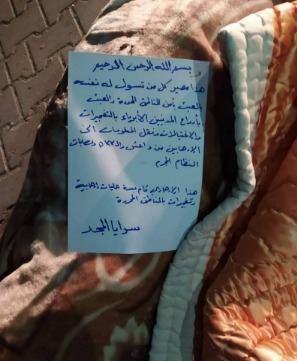 بسم الله الرحمن الرحيم
هذا مصير كل من تسول له نفسه
العبث بأمن المناطق المحررة والعبث
بأرواح المدنيين الأبرياء بالتفجيرات
والاغتيالات ونقل المعلومات الى
الارهابيين من داعش والـpkk وعصابات
النظام المجرم
هذا الارهابي قام بعدة عمليات ارهابية
وتفجيرات بالمناطق المحررة
سرايا المجد